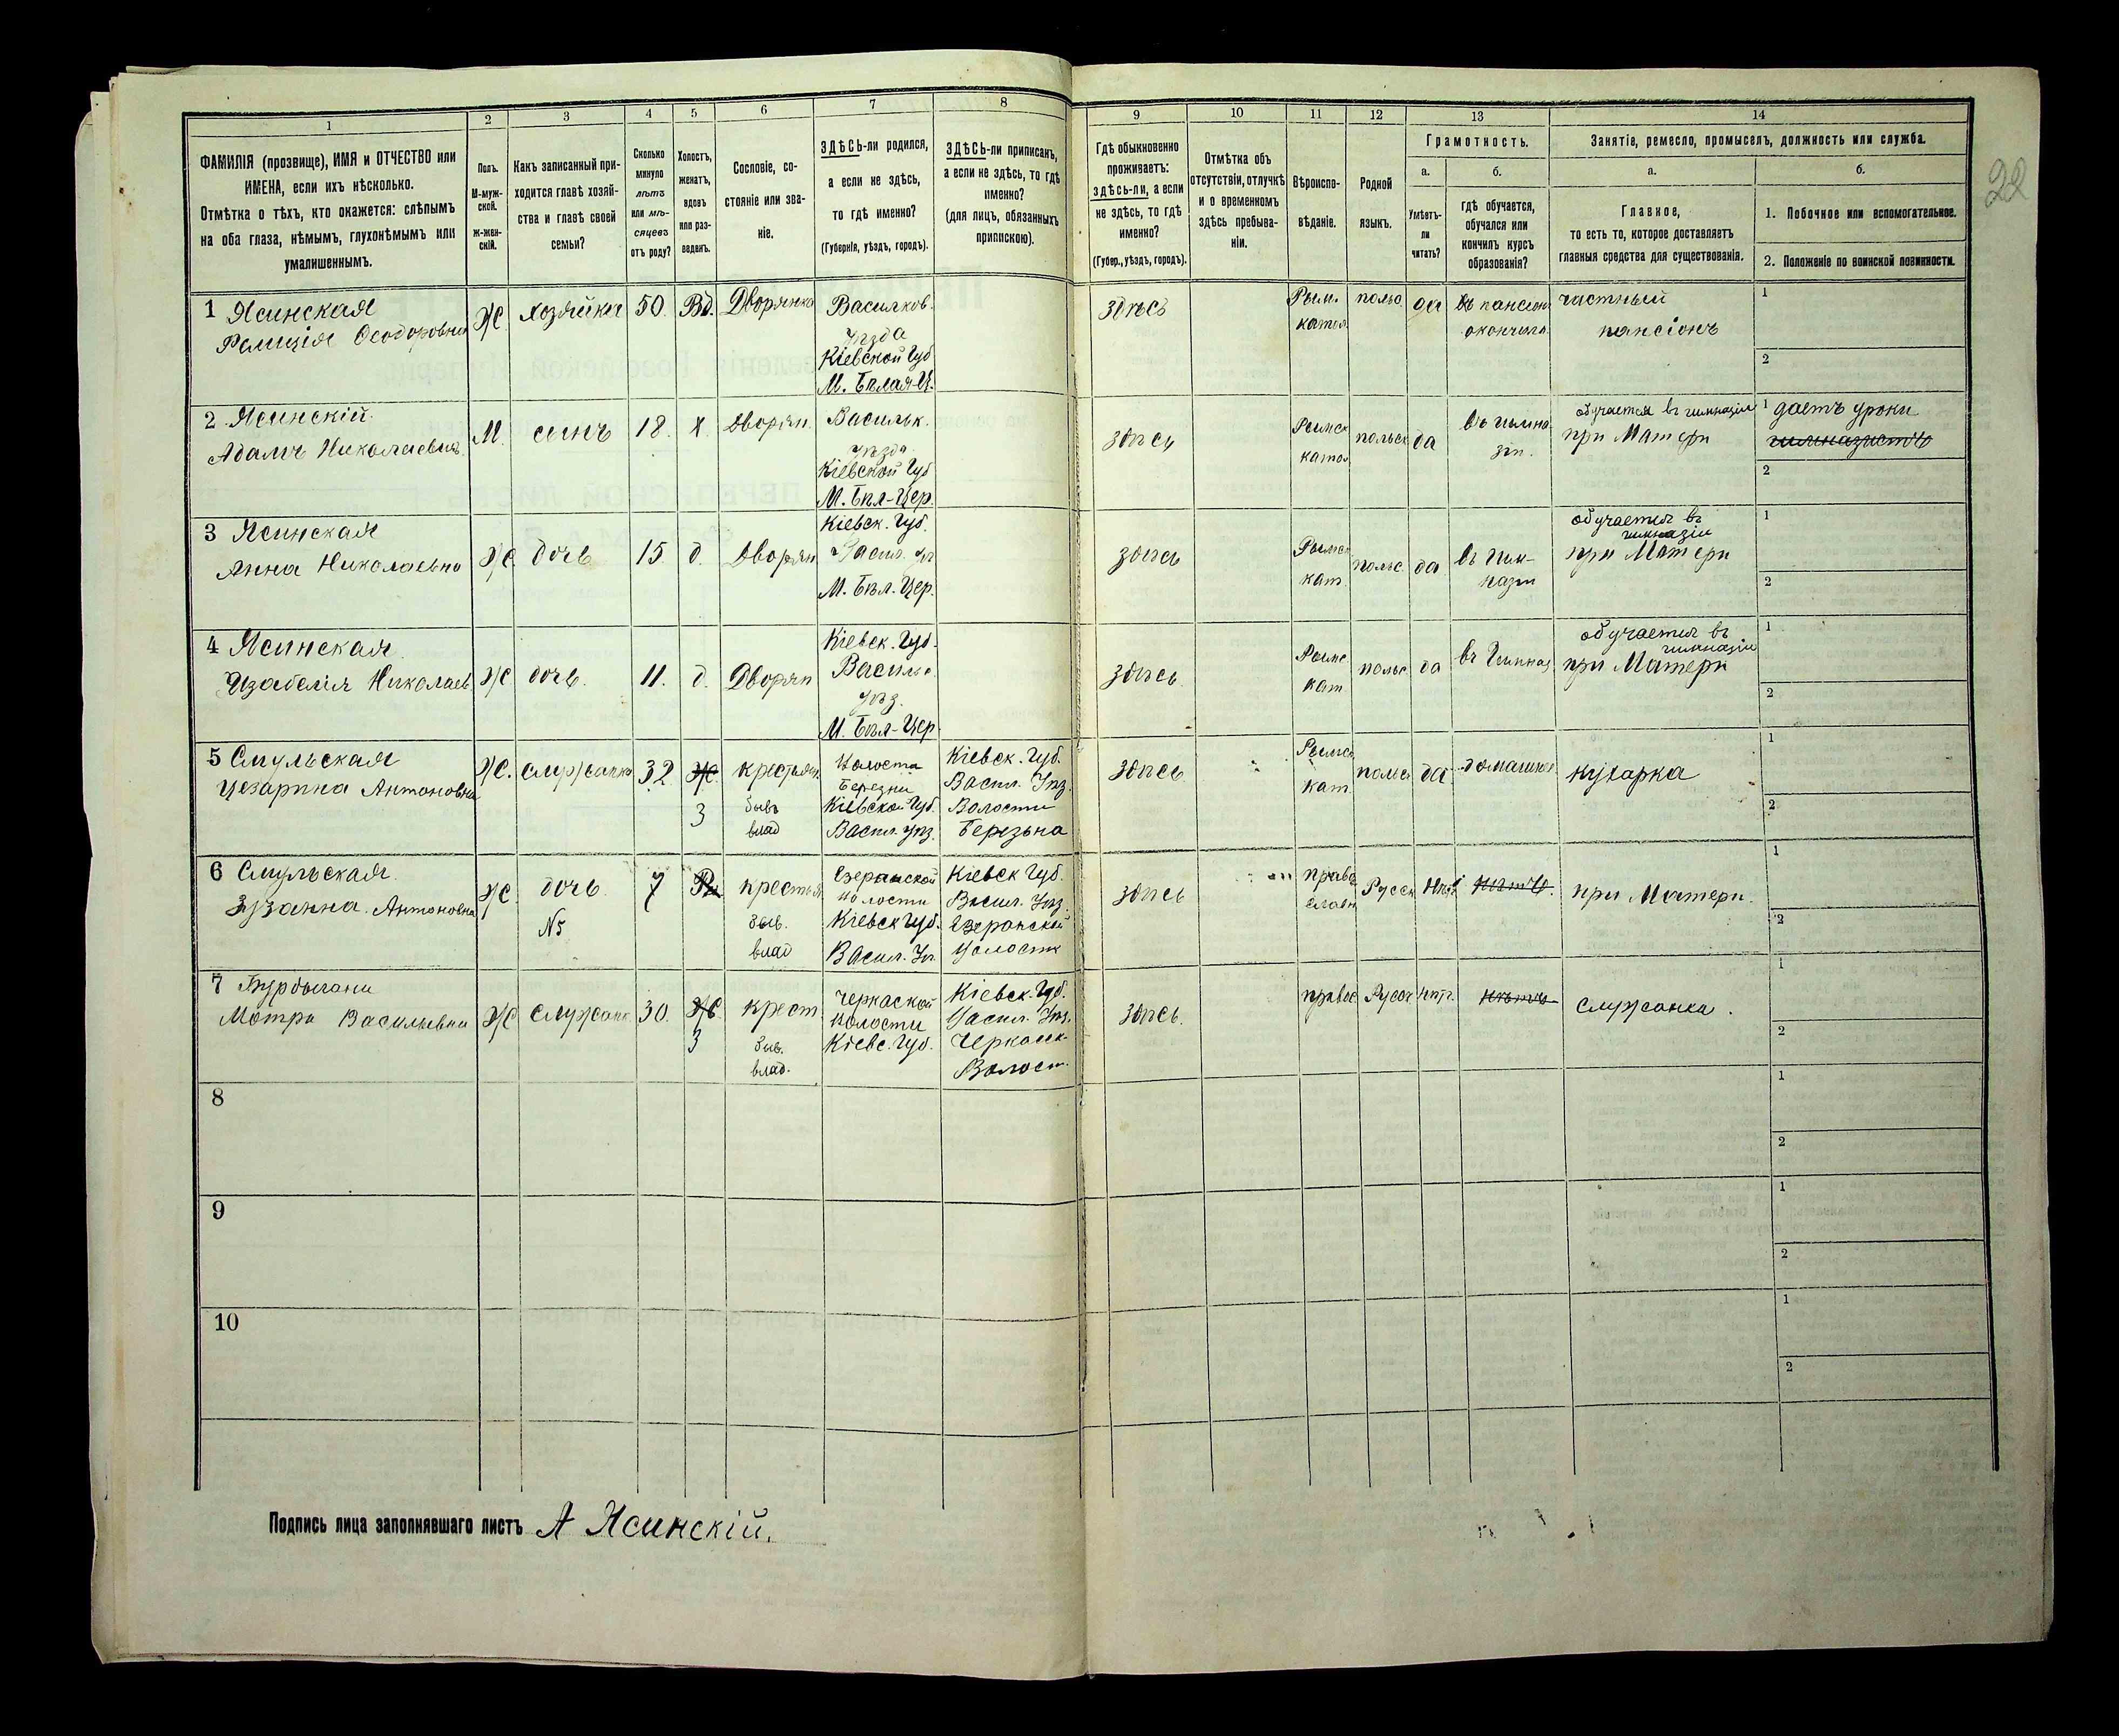 22
1 2 3 4 5 6 7 8 9 10 11 12 13 14
ФАМИЛІЯ (прозвище), ИМЯ и ОТЧЕСТВО или
ИМЕНА, если ихъ нѣсколько.
Отмѣтка о тѣхъ, кто окажется: слѣпымъ
на оба глаза, нѣмымъ, глухонѣмымъ или
умалишеннымъ.
Полъ.
М-муж-
ской.
ж-жен-
скій.
Какъ записанный при-
ходится главѣ хозяй-
ства и главѣ своей
семьи?
Сколько
минуло
лѣтъ
или мѣ-
сяцевъ
отъ роду?
Холостъ,
женатъ,
вдовъ
или раз-
веденъ.
Сословіе, со-
стояніе или зва-
ніе.
ЗДѢСЬ-ли родился,
а если не здѣсь,
то гдѣ именно?
(Губернія, уѣздъ, городъ).
ЗДѢСЬ-ли приписанъ,
а если не здѣсь, то гдѣ
именно?
(для лицъ, обязанныхъ
припискою).
Гдѣ обыкновенно
проживаетъ:
здѣсь-ли, а если
не здѣсь, то гдѣ
именно?
(Губер., уѣздъ, городъ).
Отмѣтка объ
отсутствіи, отлучкѣ
и о временномъ
здѣсь пребыва-
ніи.
Вѣроиспо-
вѣданіе.
Родной
языкъ.
Грамотность.
а.
Умѣетъ-
ли
читать?
б.
гдѣ обучается,
обучался или
кончилъ курсъ
образованія?
Занятіе, ремесло, промыселъ, должность или служба.
а.
Главное,
то есть то, которое доставляетъ
главныя средства для существованія.
б.
1. Побочное или вспомогательное.
2. Положеніе по воинской повинности.
1 Ясинская
Фелиція Ѳеодоровна
Ж. хозяйка 50. Вд. Дворянка
Васильков.
уѣзда
Кіевской Губ
М. Бѣлая-Ц.
здѣсь
Рим.
катол.
польс. да
въ пансіон
окончила
частный
пансіонъ
1
2
2 Ясинскій
Адамъ Николаевичъ
М. сынъ 18. х. Дворян.
Васильк.
уѣзда
Кіевской Губ
М. Бѣл-Цер.
здѣсь
Римск
катол
польск да
въ гимна
зіи.
обучается въ гимназіи
при Матери
1 даетъ уроки
гимназистъ
2
3 Ясинская
Анна Николаевна
Ж. дочь 15. д. Дворян
Кіевск. Губ.
Васил. уѣ
М. Бѣл. Цер.
здѣсь
Римск
кат.
польс. да
въ Гим-
назіи
обучается въ
гимназіи
при Матери
1
2
4 Ясинская
Изабелія Николаев
Ж дочь. 11. д. Дворян
Кіевск. Губ.
Василь.
уѣз.
М. Бѣл-Цер.
здѣсь
Римс
кат.
польс да въ Гимназ
обучается въ
гимназіи
при Матери
1
2
5 Смульская
Цезарина Антоновна
Ж. служанка 32 Ж.
З
крестьян.
бывъ
влад
Волости
Березни
Кіевской Губ.
Васил. уѣз.
Кіевск. Губ.
Васил. Уѣз.
Волости
Березьна
здѣсь
Римск
кат.
польск да домашнее
кухарка
1
2
6 Смульская
Зузанна Антоновна
Ж. дочь
№5
7
крестья
быв.
влад
Езеранской
Волости
Кіевск Губ.
Васил. Уѣ.
Кіевск Губ.
Васил. Уѣз.
Езеранской
Волости
здѣсь
право
славн
Русск Нѣт нѣтъ.
при Матери.
1
2
7
Мотря Васильевна
Ж служанк 30. Ж.
З
крест.
быв.
влад.
Черкаской
Волости
Кіевс. Губ.
Кіевск. Губ.
Васил. Уѣз.
Черкаск
Волост.
здѣсь.
правос Русск нѣт. нѣтъ
служанка.
1
2
8
1
2
9
1
2
10
1
2
Подпись лица заполнявшаго листъ А Ясинскій.